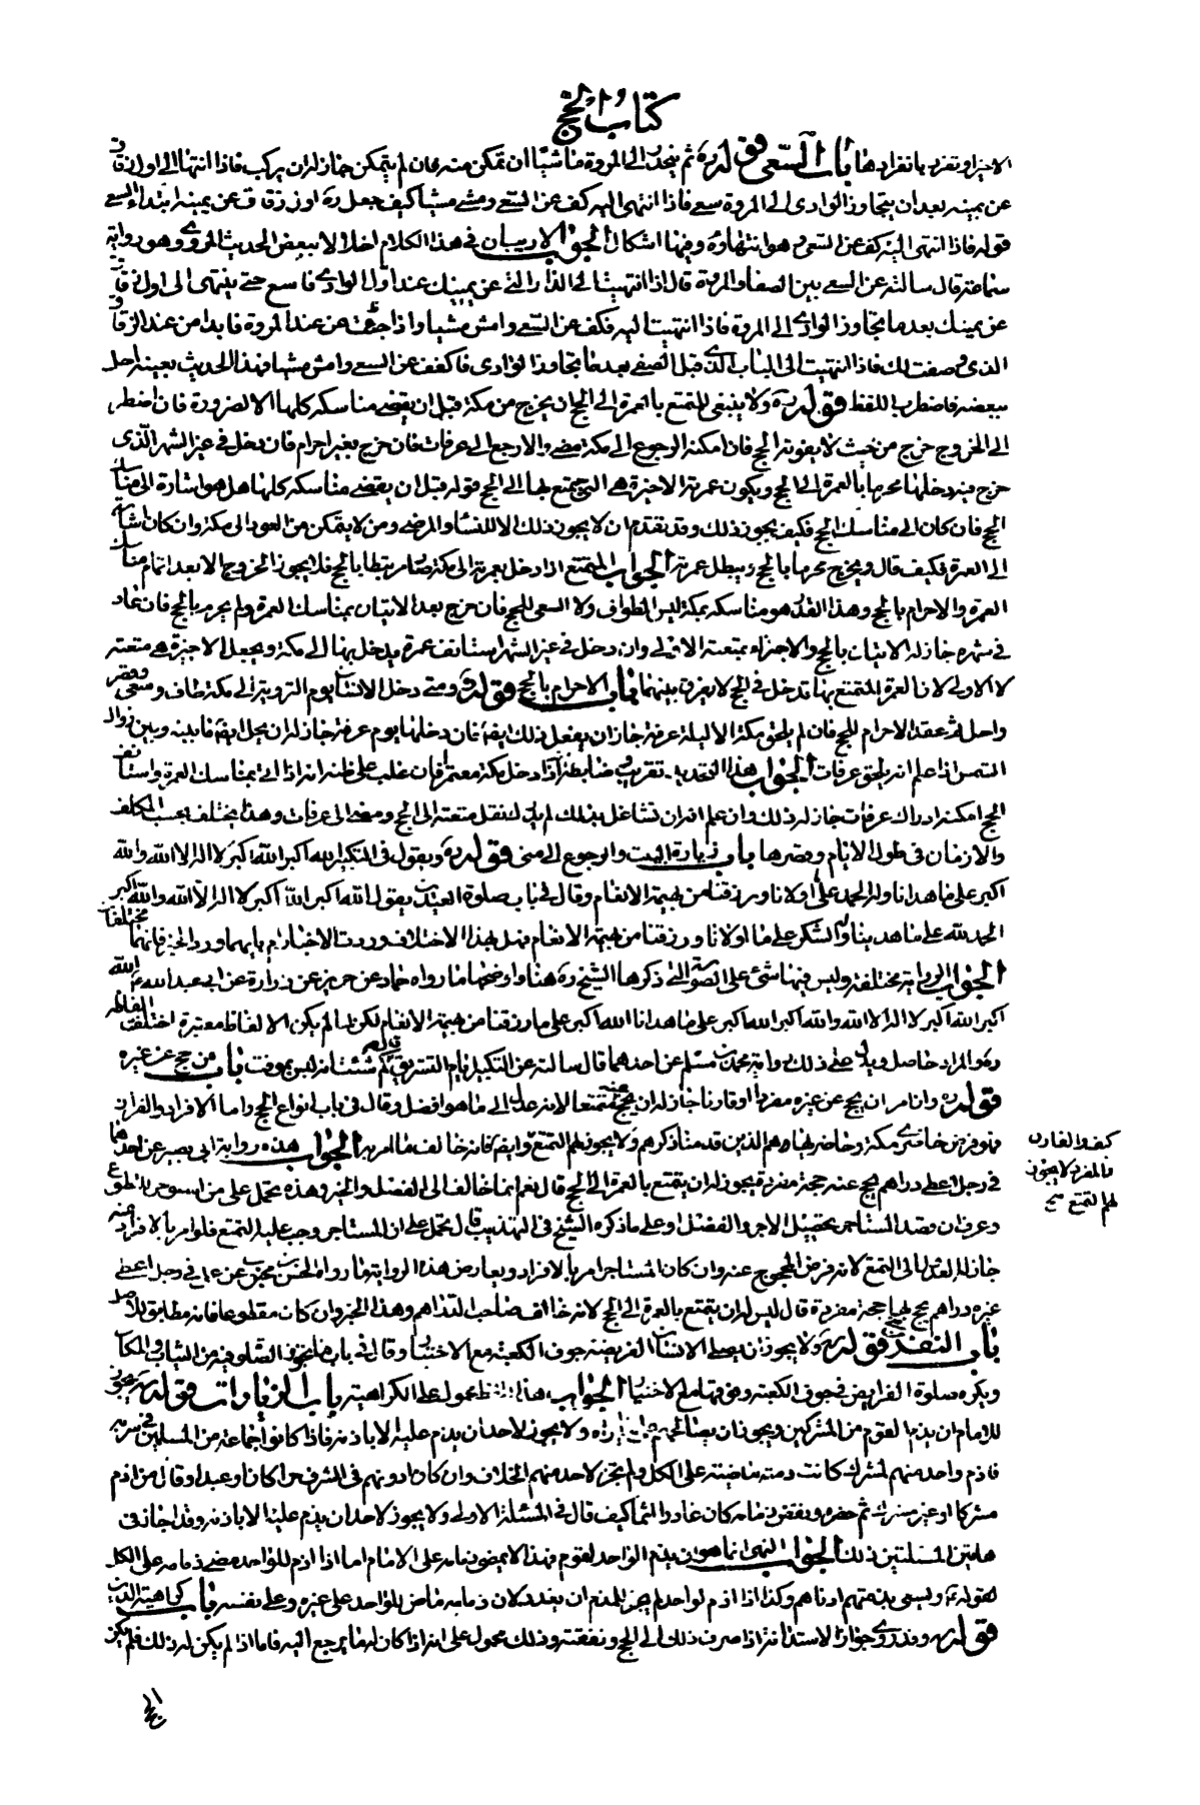 كتاب الحج
الاخير او تفرد بانفرادها باب السعى قوله ره ثم ينحدر الى المروة ماشيا ان تمكن منه فان لم يتمكن جاز له ان يركب فاذا انتهى الى اول زقاق
عن يمينه بعد ان يتجاوز الوادى الى المروة سعى فاذا انتهى اليه كف عن السعى ومشى مشيا كيف جعل ره اول زقاق عن يمينه ابتداء السعى
قوله فاذا انتهى اليه كف عن السعى وهو انتهاؤه وفيها اشكال الجواب لا ريب ان فى هذا الكلام اخلالا ببعض الحديث المروى وهو رواية
سماعة قال سالته عن السعى بين الصفا والمروة قال اذا انتهيت الى الدار التى عن يمينك عند اول الوادى فاسع حتى ينتهى الى اول زقاق
عن يمينك بعد ما تجاوز الوادى الى المروة فاذا انتهيت اليه فكف عن السعى وامش مشيا واذا جئت من عند المروة فابدا من عند الزقاق
الذى وصفت لك فاذا انتهيت الى الباب الذى قبل الصفى بعد ما تجاوز الوادى فاكفف عن السعى وامش مشيا وهذا الحديث بعينه اخل
ببعضه فاضطرب اللفظ قوله ره ولا ينبغى للمتمتع بالعمرة الى الحج ان يخرج من مكة قبل ان يقضى مناسكه كلها الا لضرورة فان اضطر
الى الخروج خرج من حيث لا يفوته الحج فان امكنه الرجوع الى مكة مضى والا رجع الى عرفات فان خرج بغير احرام فان دخل فى غير الشهر الذى
خرج فيه دخلها محرما بالعمرة الى الحج ويكون عمرته الاخيرة هى التى يتمتع بها الى الحج قوله قبل ان يقضى مناسكه كلها هل هو اشارة الى مناسك
الحج فان كان الى مناسك الحج فكيف يجوز ذلك وقد تقدم ان لا يجوز ذلك الا للنساء والمرضى ومن لا يتمكن من العود الى مكة وان كان اشارة
الى العمرة فكيف قال ويخرج محرما بالحج ويبطل عمرته الجواب المتمتع اذا دخل بعمرته الى مكة صار مرتبطا بالحج فلا يجوز الخروج الا بعد اتمام مناسك
العمرة والاحرام بالحج وهذا القدر هو مناسكه بمكة ليس الطواف ولا السعى للحج فان خرج بعد الاتيان بمناسك العمرة ولم يحرم بالحج فان عاد
فى شهره جاز له الاتيان بالحج والاجزاء بمتعته الاولى وان دخل فى غير الشهر استانف عمرة يدخل بها الى مكة ويجعل الاخيرة هى متعته
لا الاولى لان العمرة المتمتع بها تدخل فى الحج لا يفرق بينهما باب الاحرام بالحج قوله ره ومتى دخل الانسان يوم التروية الى مكة طاف وسعى وقصر
واحل ثم عقد الاحرام للحج فان لم يلحق مكة الا ليلة عرفة جاز ان يفعل ذلك ايضا فان دخلها يوم عرفة جاز له ان يحل ايضا ما بينه وبين زوال
الشمس اذا علم انه يلحق عرفات الجواب هذا التحديد تقريب وضابطه اذا دخل مكة معتمرا فان غلب على ظنه انه اذا اتى بمناسك العمرة واستانف
الحج امكنه ادراك عرفات جاز له ذلك وان علم انه ان تشاغل بذلك لم يدرك نقل متعته الى الحج ومضى الى عرفات وهذا يختلف بحسب المكلف
والازمان فى طول الايام وقصرها باب زيارة البيت والرجوع الى منى قوله ره ويقول فى التكبير الله اكبر الله اكبر لا اله الا الله والله
اكبر على ما هدانا وله الحمد على ما اولانا ورزقنا من بهيمة الانعام وقال فى باب صلوة العيدين يقول الله اكبر الله اكبر لا اله الا الله والله اكبر
الحمد لله على ما هدينا وله الشكر على ما اولانا ورزقنا من بهيمة الانعام فهل بهذا الاختلاف وردت الاخبار ام بايهما ورد الخبر فانهما مختلفان
الجواب الرواية مختلفة وليس فيها شىء على الصورة التى ذكرها الشيخ ره هنا واوضحها ما رواه حماد عن حريز عن زرارة عن ابى عبد الله ع الله
اكبر الله اكبر لا اله الا الله والله اكبر الله اكبر على ما هدانا الله اكبر على ما رزقنا من بهيمة الانعام لكن لما لم يكن الالفاظ معتبرة اختلفت الفاظه
وهو المراد حاصل ويدل على ذلك رواية محمد بن مسلم عن احدهما قال سالته عن التكبير ايام التشريق كم قال كم شئت انه ليس بموقت باب من حج عن غيره
قوله ره وان امر ان يحج عن غيره مفردا او قارنا جاز له ان يحج عنه متمتعا لانه عدل الى ما هو افضل وقال فى باب انواع الحج واما الافراد والقران
فهو فرض حاضرى مكة وحاضريها وهم الذين قدمنا ذكرهم ولا يجوز لهم التمتع وايضا فانه خالف ما امر به الجواب هذه رواية ابى بصير عن احدهما
فى رجل اعطى دراهم يحج عنه حجة مفردة يجوز له ان يتمتع بالعمرة الى الحج قال نعم انما خالف الى الفضل والخير وهذه تحمل على من استوجر للتطوع
وعرف ان قصد المستاجر تحصيل الاجر والفضل او على ما ذكره الشيخ فى التهذيب قال تحمل على ان المستاجر وجب عليه التمتع فلو امر بالافراد عنه
جاز له العدل الى التمتع لانه فرض المحجوج عنه وان كان المستاجر امر بالافراد ويعارض هذه الرواية ما رواه الحسن بن محبوب عن على فى رجل اعطى
غيره دراهم يحج بها حجة مفردة قال ليس له ان يتمتع بالعمرة الى الحج لا نه خالف صاحب الدراهم وهذا الخبر وان كان مقطوعا فانه مطابق للاصل
باب النفر قوله ره ولا يجوز ان يصلى الانسان الفريضة جوف الكعبة مع الاختيار وقال فى باب ما يجوز الصلوة فيه من الثياب والمكان
ويكره صلوة الفرايض فى جوف الكعبة وفوقها مع الاختيار الجواب هذا اللفظ محمول على الكراهية باب الزيارات قوله ره يجوز
للامام ان يذم لقوم من المشركين ويجوز ان يصالحهم على ما يراه ولا يجوز لاحد ان يذم عليه الا باذنه فاذا كانوا جماعة من المسلمين فى سرية
فاذم واحد منهم لمشرك كانت ذمته ماضية على الكل ولم يجز لاحد منهم الخلاف وان كان ادونهم فى الشرف حرا كان او عبدا وقال من اذم
مشركا او غير مشرك ثم حفره ونقض ذمامه كان غادرا آثما كيف قال فى المسئلة الاولى ولا يجوز لاحد ان يذم عليه الا باذنه وقد اجاز فى
هاتين المسئلتين ذلك الجواب النهى انما هو ان يذم الواحد لقوم فهذا لا يمضى ذمامه على الامام اما اذا اذم للواحد مضى ذمامه على الكل
لقوله ع ويسعى بذمتهم ادناهم وكذا اذا اذم لواحد لم يجز للمذم ان يغدر لان ذمامه ماض للواحد على غيره وعلى نفسه باب كراهية الدين
قوله ره وقد روى جواز الاستدانة اذا صرف ذلك الى الحج ونفقته وذلك محمول على انه اذا كان لهما يرجع اليه فاما اذا لم يكن له ذلك فلم يكن
كيف والقارن
فالمفرد لا يجوز
لهم التمتع صح
الى الحج